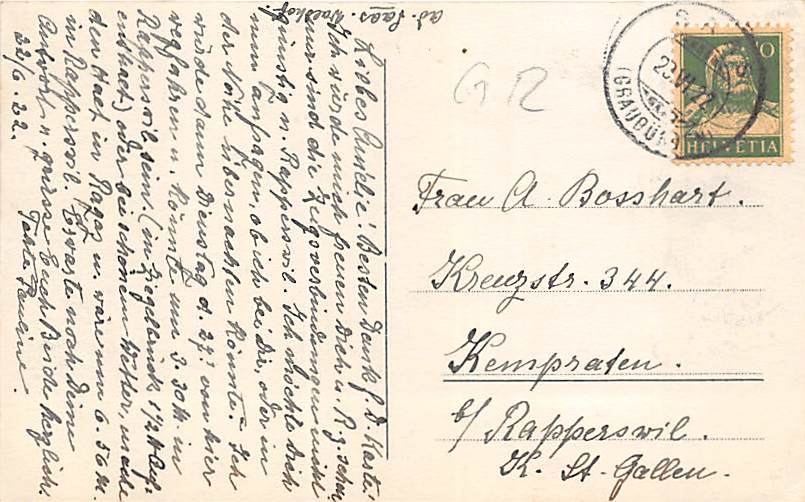 ad. Saas. Waldhof.
Liebes Amélie! Besten Dank f. D. Karte!
Ich würde mich freuen Dich u. R. z. sehen,
nur sind die Zugsverbindungen nicht
günstig n. Rapperswil. Ich möchte Dich
nun anfragen, ob ich bei Dir, oder in
der Nähe übernachten könnte. Ich
würde dann Dienstag d. 27. von hier
wegfahren u. könnte um 3.30 M. in
Rapperswil sein (in Ziegelbrück 1/2 St. Auf-
enthalt) oder bei schönem Wetter, mache
den Halt in Ragaz u. wäre um 6.56 M.
in Rapperswil. Erwarte noch Deine
Antwort u. grüsse Euch Beide herzlich
22/6. 22. Tante Pauline.
GR
10
HELVETIA
(GRAUBÜN
Frau A. Bosshart.
Kreuzstr. 344.
Kempraten.
b/ Rapperswil.
K. St. Gallen.